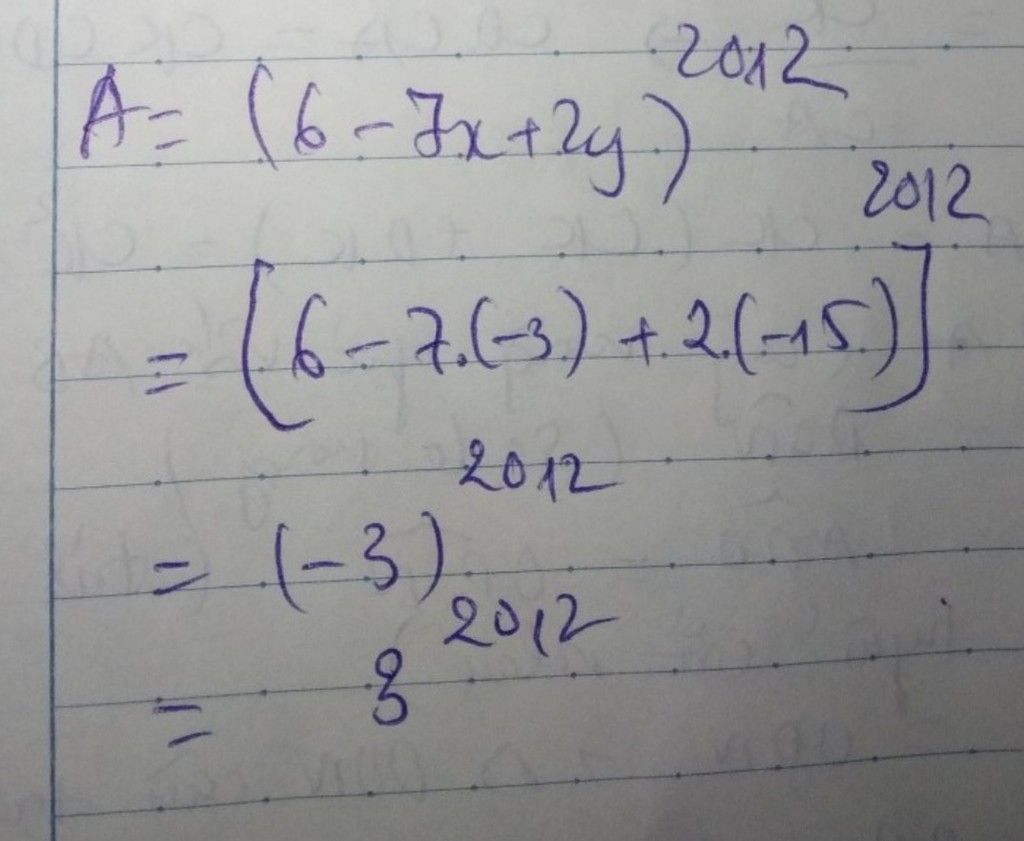 A = (6 - 7x + 2y)^2012
= [6 - 7.(-3) + 2.(-15)]^2012
= (-3)^2012
= 3^2012